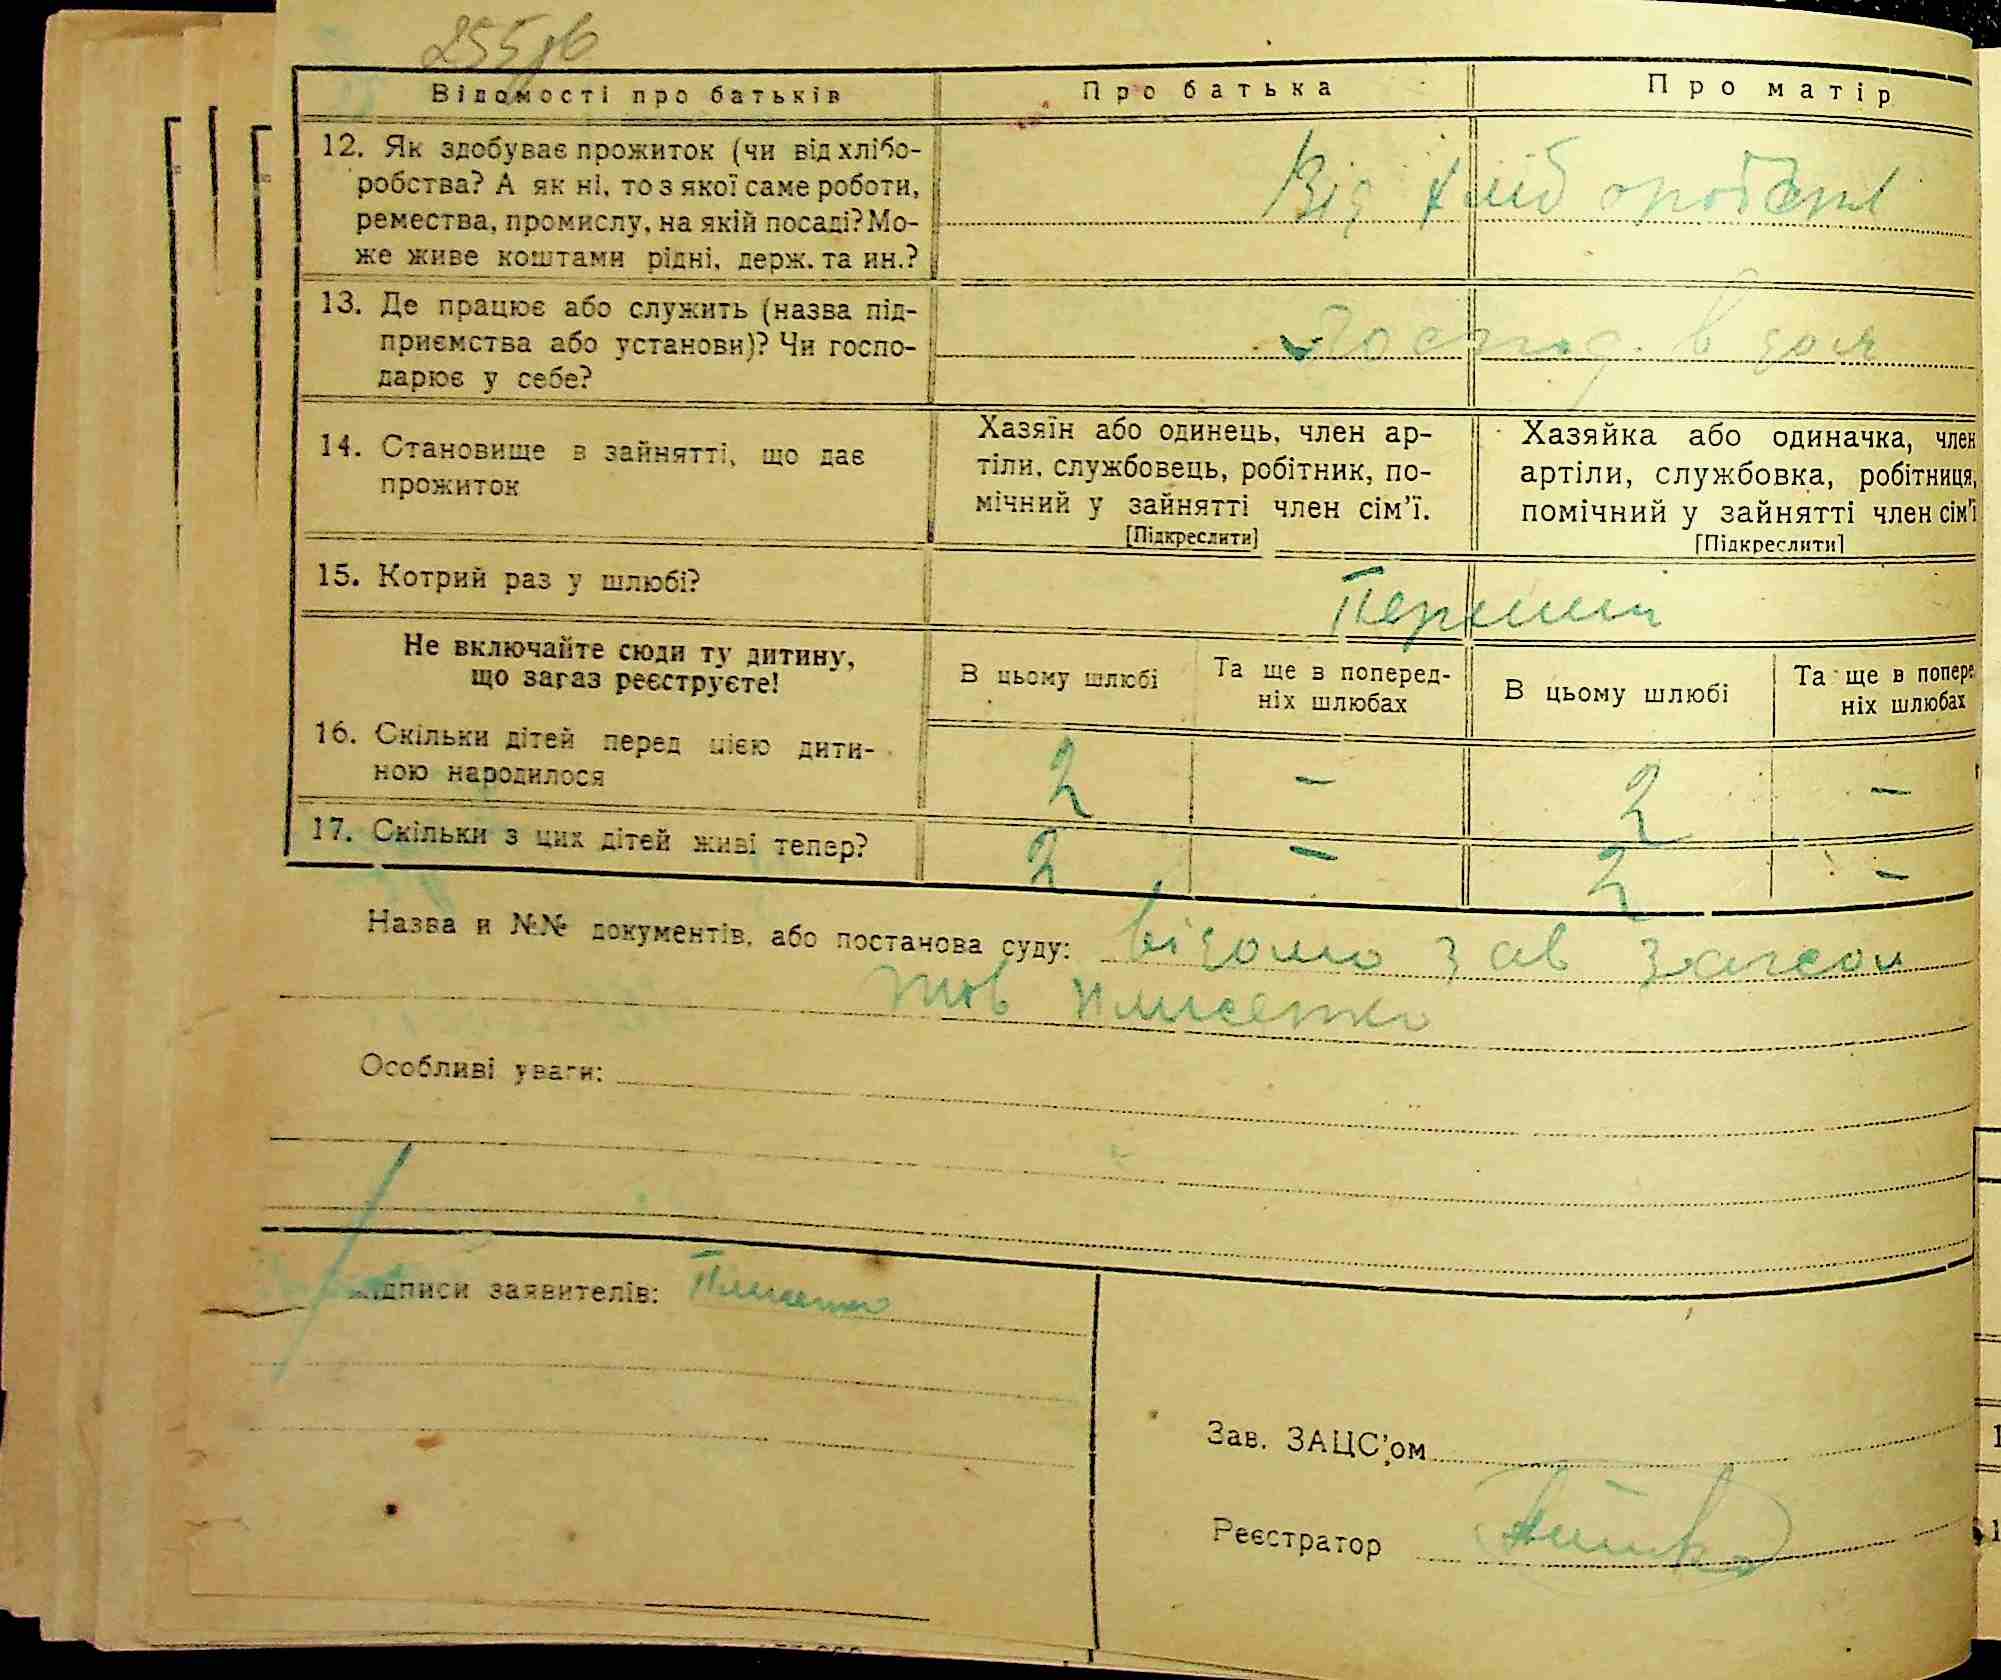 255зв
Відомості про батьків
Про батька
Про матір
12. Як здобуває прожиток (чи від хлібо-
робства? А як ні, то з якої саме роботи,
ремества, промислу, на якій посаді? Мо-
же живе коштами рідні, держ. та ин.?
Від
13. Де працює або служить (назва під-
приємства або установи)? Чи госпо-
дарює у себе?
Господ. в дома
14. Становище в зайнятті, що дає
прожиток
Хазяїн або одинець, член ар-
тіли, службовець, робітник, по-
мічний у зайнятті член сім'ї.
[Підкреслити]
Хазяйка або одиначка, член
артіли, службовка, робітниця,
помічний у зайнятті член сім'ї
[Підкреслити]
15. Котрий раз у шлюбі?
Перший
Не включайте сюди ту дитину,
що зараз реєструєте!
В цьому шлюбі
Та ще в поперед-
ніх шлюбах
В цьому шлюбі
Та ще в попере
ніх шлюбах
16. Скільки дітей перед цією дити-
ною народилося
2 - 2 -
17. Скільки з цих дітей живі тепер?
2 - 2 -
Назва и №№ документів, або постанова суду: відомо зав загсом
тов
Особливі уваги:
ідписи заявителів:
Зав. ЗАЦС'ом
Реєстратор